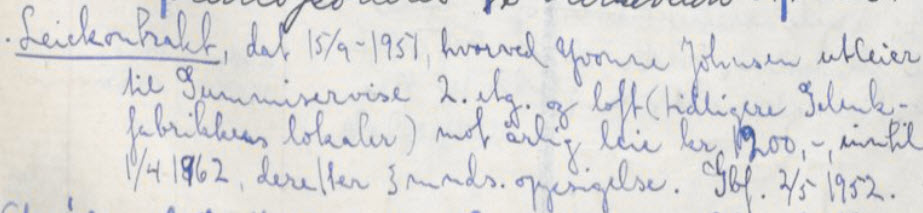 Leiekontrakt, dat 15/9-1951, hvorved Yvonne Johnsen utleier
til Gummiservise 2. etg. og loft (tidligere
fabrikkens lokaler) mot årlig leie kr. 1200,-, inntil
1/4 1962, derefter 3 mnds. oppsigelse. Gbf. 2/5 1952.